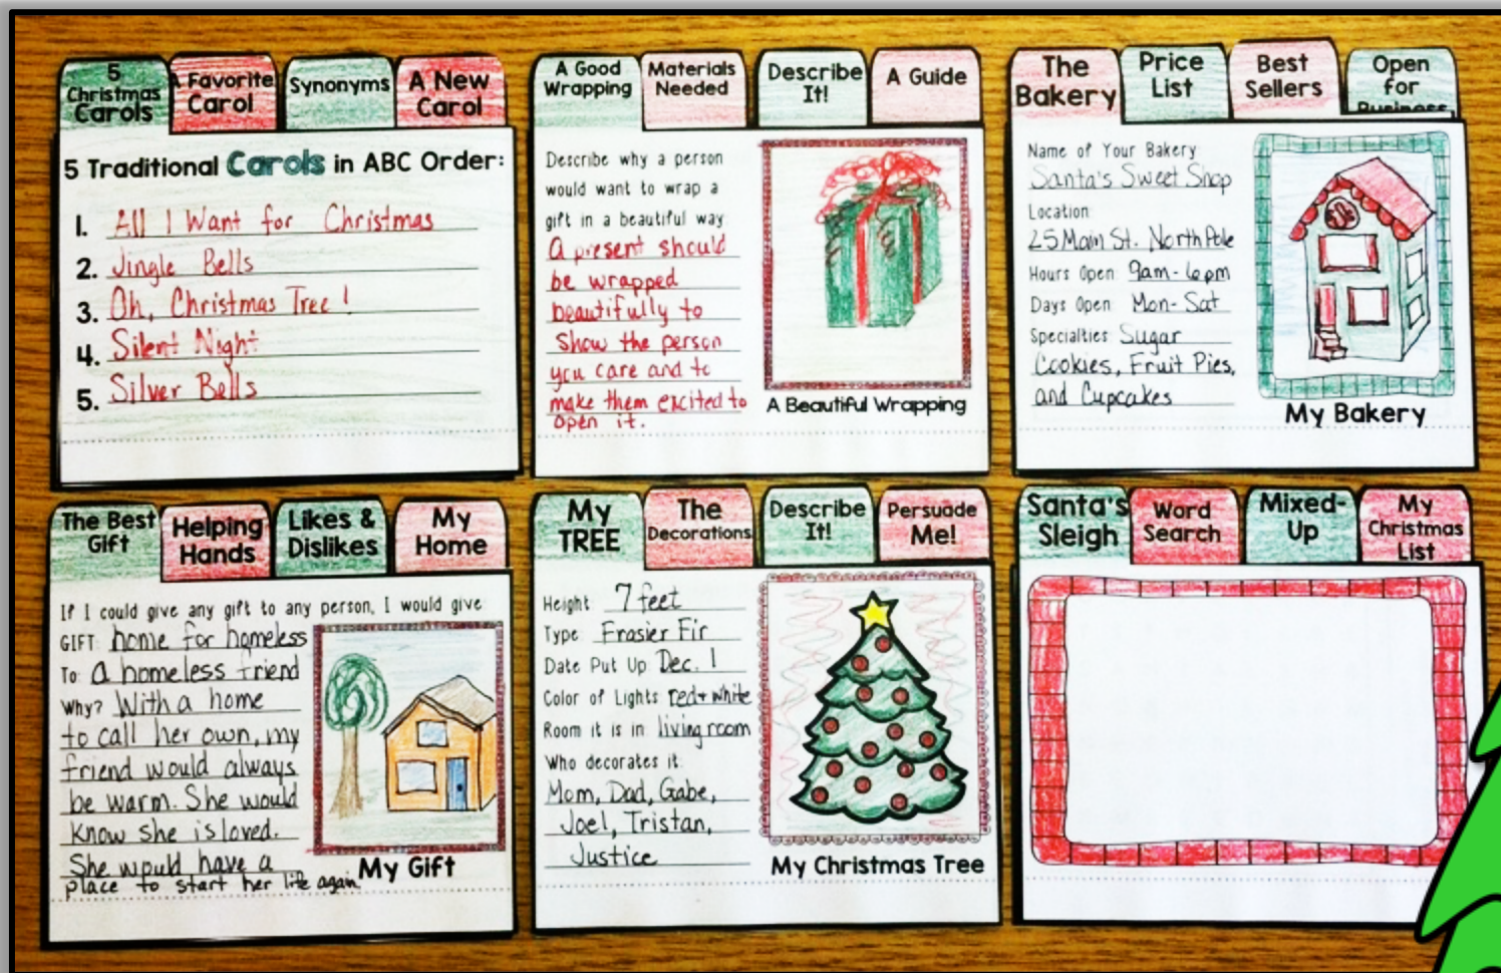 5
Christmas
Carols
A Favorite
Carol
Synonyms
A New
Carol
5 Traditional Carols in ABC Order:
1. All I Want for Christmas
2. Jingle Bells
3. Oh, Christmas Tree!
4. Silent Night
5. Silver Bells
A Good
Wrapping
Materials
Needed
Describe
It!
A Guide
Describe why a person
would want to wrap a
gift in a beautiful way
A present should
be wrapped
beautifully to
show the person
you care and to
make them excited to
open it.
A Beautiful Wrapping
The
Bakery
Price
List
Best
Sellers
Open
for
Business
Name of Your Bakery
Santa's Sweet Shop
Location:
25 Main St. North Pole
Hours Open: 9am-6pm
Days Open: Mon-Sat
Specialties: Sugar
Cookies, Fruit Pies,
and Cupcakes
My Bakery
The Best
Gift
Helping
Hands
Likes &
Dislikes
My
Home
If I could give any gift to any person, I would give
GIFT: home for homeless
To: A homeless friend
Why? With a home
to call her own, my
friend would always
be warm. She would
know she is loved.
She would have a
place to start her life again.
My Gift
My
TREE
The
Decorations
Describe
It!
Persuade
Me!
Height: 7 feet
Type: Frasier Fir
Date Put Up: Dec. 1
Color of Lights: red + white
Room it is in: living room
Who decorates it:
Mom, Dad, Gabe,
Joel, Tristan,
Justice
My Christmas Tree
Santa's
Sleigh
Word
Search
Mixed-
Up
My
Christmas
List